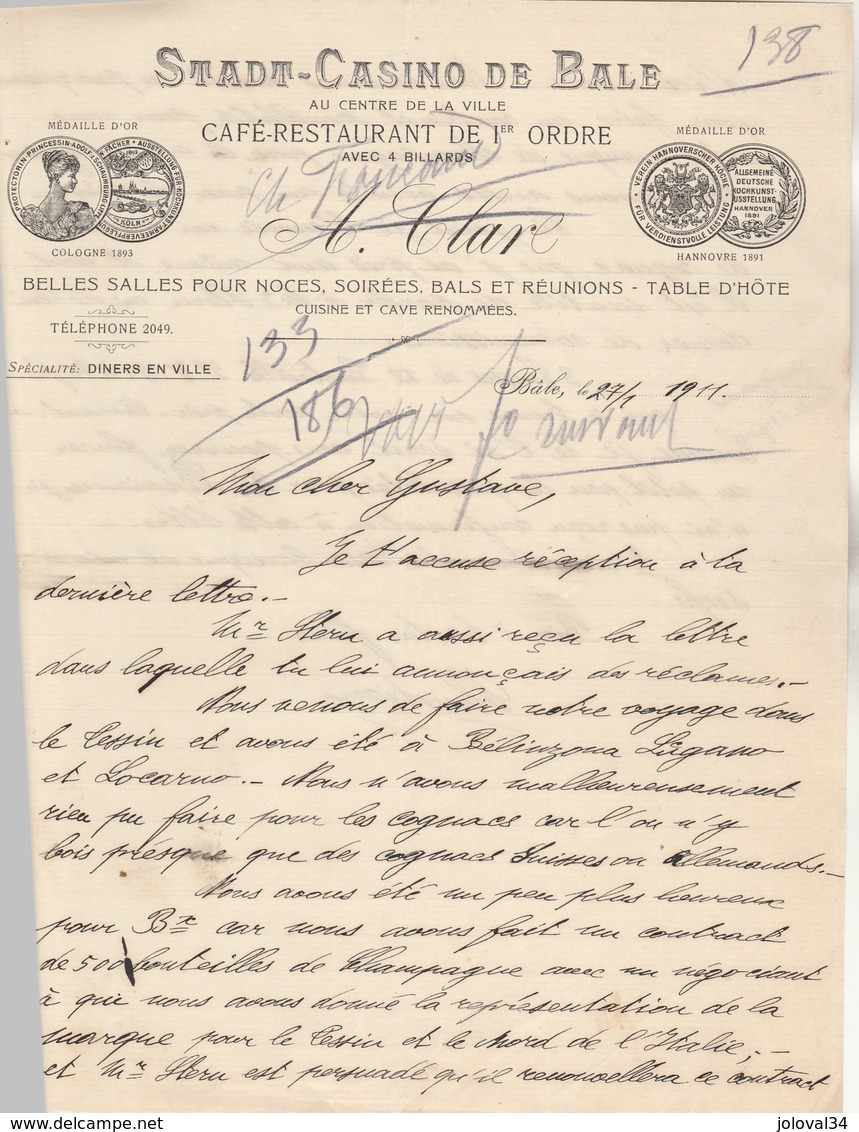 138
STADT-CASINO DE BALE
AU CENTRE DE LA VILLE
CAFÉ-RESTAURANT DE 1ER ORDRE
AVEC 4 BILLARDS
MÉDAILLE D'OR
COLOGNE 1893
MÉDAILLE D'OR
VEREIN HANNOVERSCHER KÖCHE
FÜR VERDIENSTVOLLE LEISTUNG
ALLGEMEINE
DEUTSCHE
KOCHKUNST-
AUSSTELLUNG
HANNOVER
1891
HANNOVRE 1891
A. Clare
BELLES SALLES POUR NOCES, SOIRÉES, BALS ET RÉUNIONS - TABLE D'HÔTE
CUISINE ET CAVE RENOMMÉES.
TÉLÉPHONE 2049.
SPÉCIALITÉ: DINERS EN VILLE
133
186
Bâle, le 27/1 1911.
Mon cher Gustave,
Je t'accuse réception à ta
dernière lettre.-
Mr Stern a aussi reçu la lettre
dans laquelle tu lui annonçais des réclames.-
Nous venons de faire notre voyage dans
le Tessin et avons été à Bélinzona Lugano
et Locarno.- Nous n'avons malheureusement
rien pu faire pour les cognacs car l'on n'y
bois présque que des cognacs Suisses ou Allemands.-
Nous avons été un peu plus heureux
pour Bx car nous avons fait un contract
de 500 bouteilles de Champagne avec un négociant
à qui nous avons donné la représentation de la
marque pour le Tessin et le Nord de l'Italie,-
et Mr Stern est persuadé qu'il renouvellera ce contract
joloval34